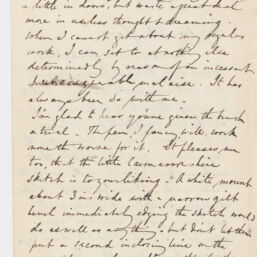 a little in doors, but waste a great deal
more in useless thought & dreaming.
When I cannot get about my regular
work, I can set to at nothing else
determinedly by reason of an incessant
unconquerable malaise. It has
always been so with me.
I'm glad to hear you've given the brush
a trial. The pen, I fancy will work
none the worse for it. It pleases me
too, that the little Caernarvonshire
sketch is to your liking. A white mount
about 3 ins wide with a narrow gilt
bevel immediately edging the sketch would
do as well as anything, but don't let them
put a second inclosing line on the